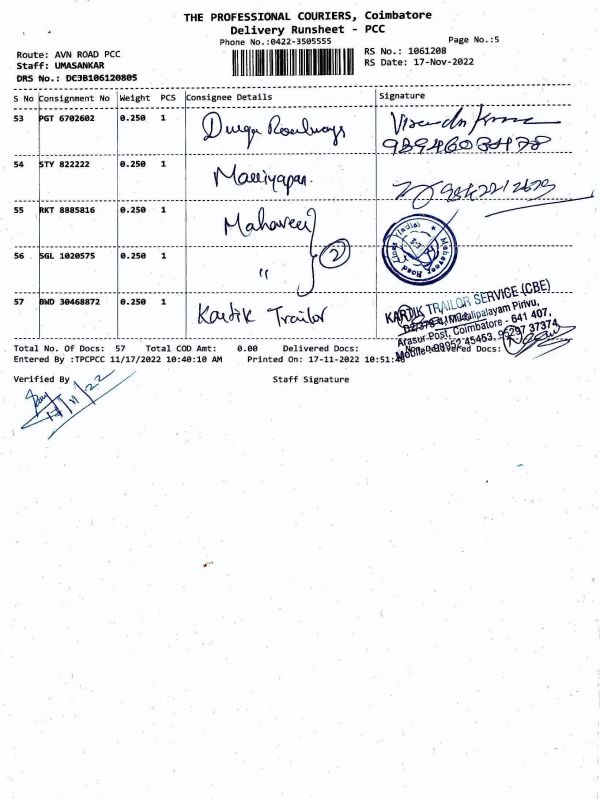 THE PROFESSIONAL COURIERS, Coimbatore
Delivery Runsheet - PCC
Phone No.:0422-3505555 Page No.:5
Route: AVN ROAD PCC RS No.: 1061208
Staff: UMASANKAR RS Date: 17-Nov-2022
DRS No.: DCJB106120805
S No Consignment No Weight PCS Consignee Details Signature
53 PGT 6702602 0.250 1 Durga Roadways
54 STY 822222 0.250 1 Mariyapan.
55 RKT 8885816 0.250 1 Mahaveer
Mahaveer Road Lines (India)
56 SGL 1020575 0.250 1 " 2
57 BWD 30468872 0.250 1 Kartik Trailor
KARTIK TRAILOR SERVICE (CBE)
Pirivu,
Arasur Post, Coimbatore - 641 407,
Mobile: 98952 45453,
Total No. Of Docs: 57 Total COD Amt: 0.00 Delivered Docs: Non-Delivered Docs:
Entered By :TPCPCC 11/17/2022 10:40:10 AM Printed On: 17-11-2022
Verified By Staff Signature
17/11/22